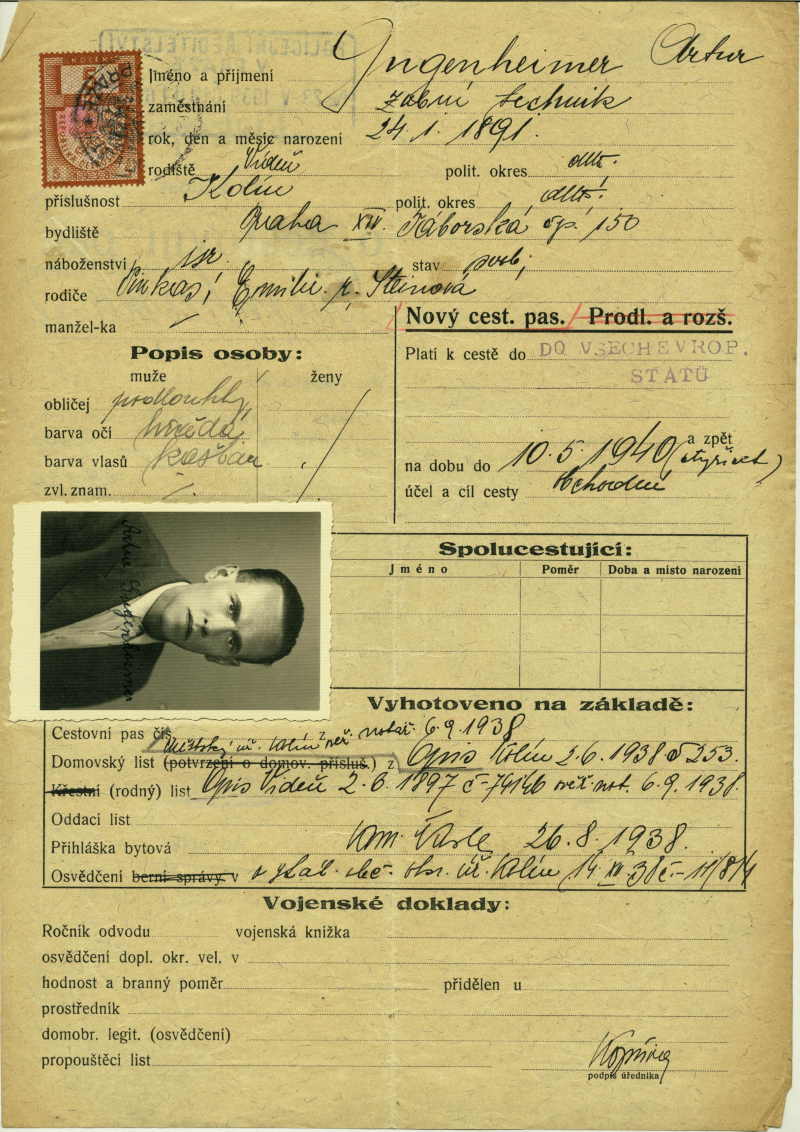 POLICEJNÍ ŘEDITELSTVÍ
KOLEK
5
PRAHA
Jméno a příjmení Jugenheimer Artur
zaměstnání zubní technik
rok, den a měsíc narození 24. 1. 1891.
rodiště Vídeň polit. okres dtto.
příslušnost Kolín polit. okres dtto.
bydliště Praha XII. Táborská čp. 150
náboženství isr. stav svob.
rodiče Pinkas, Emilie r. Steinová
manžel-ka /
Nový cest. pas. Prodl. a rozš.
Popis osoby:
Platí k cestě do DO VŠECH EVROP.
STÁTŮ
muže ženy
obličej podlouhlý
barva očí hnědá
barva vlasů kaštan
zvl. znam.
a zpět
na dobu do 10. 5. 1940 (čtyřicet)
účel a cíl cesty obchodní
Spolucestující:
Jméno Poměr Doba a místo narození
Vyhotoveno na základě:
Cestovní pas čís.
Městský úř. Kolín not. 6. 9. 1938
Domovský list (potvrzení o domov. přísluš.) z Opis Kolín 2. 6. 1938 č 253.
Křestní (rodný) list Opis Vídeň 2. 6. 1897 č - not. 6. 9. 1938.
Oddací list
Přihláška bytová 26. 8. 1938.
Osvědčení berní správy v úř. Kolín 14. XI. 38 č.
Vojenské doklady:
Ročník odvodu vojenská knížka
osvědčení dopl. okr. vel. v
hodnost a branný poměr přidělen u
prostředník
domobr. legit. (osvědčení)
propouštěcí list
podpis úředníka